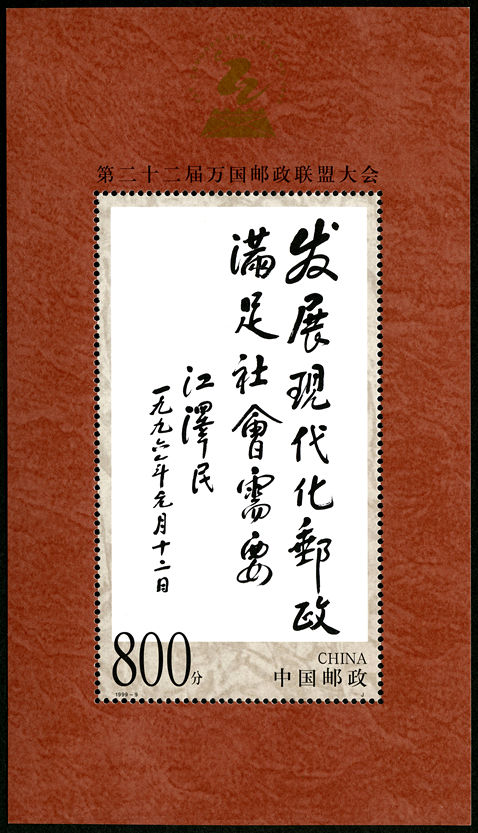 第二十二届万国邮政联盟大会
发展現代化郵政
滿足社會需要
江澤民
一九九六年元月十二日
800分
CHINA
中国邮政
1999-9
J